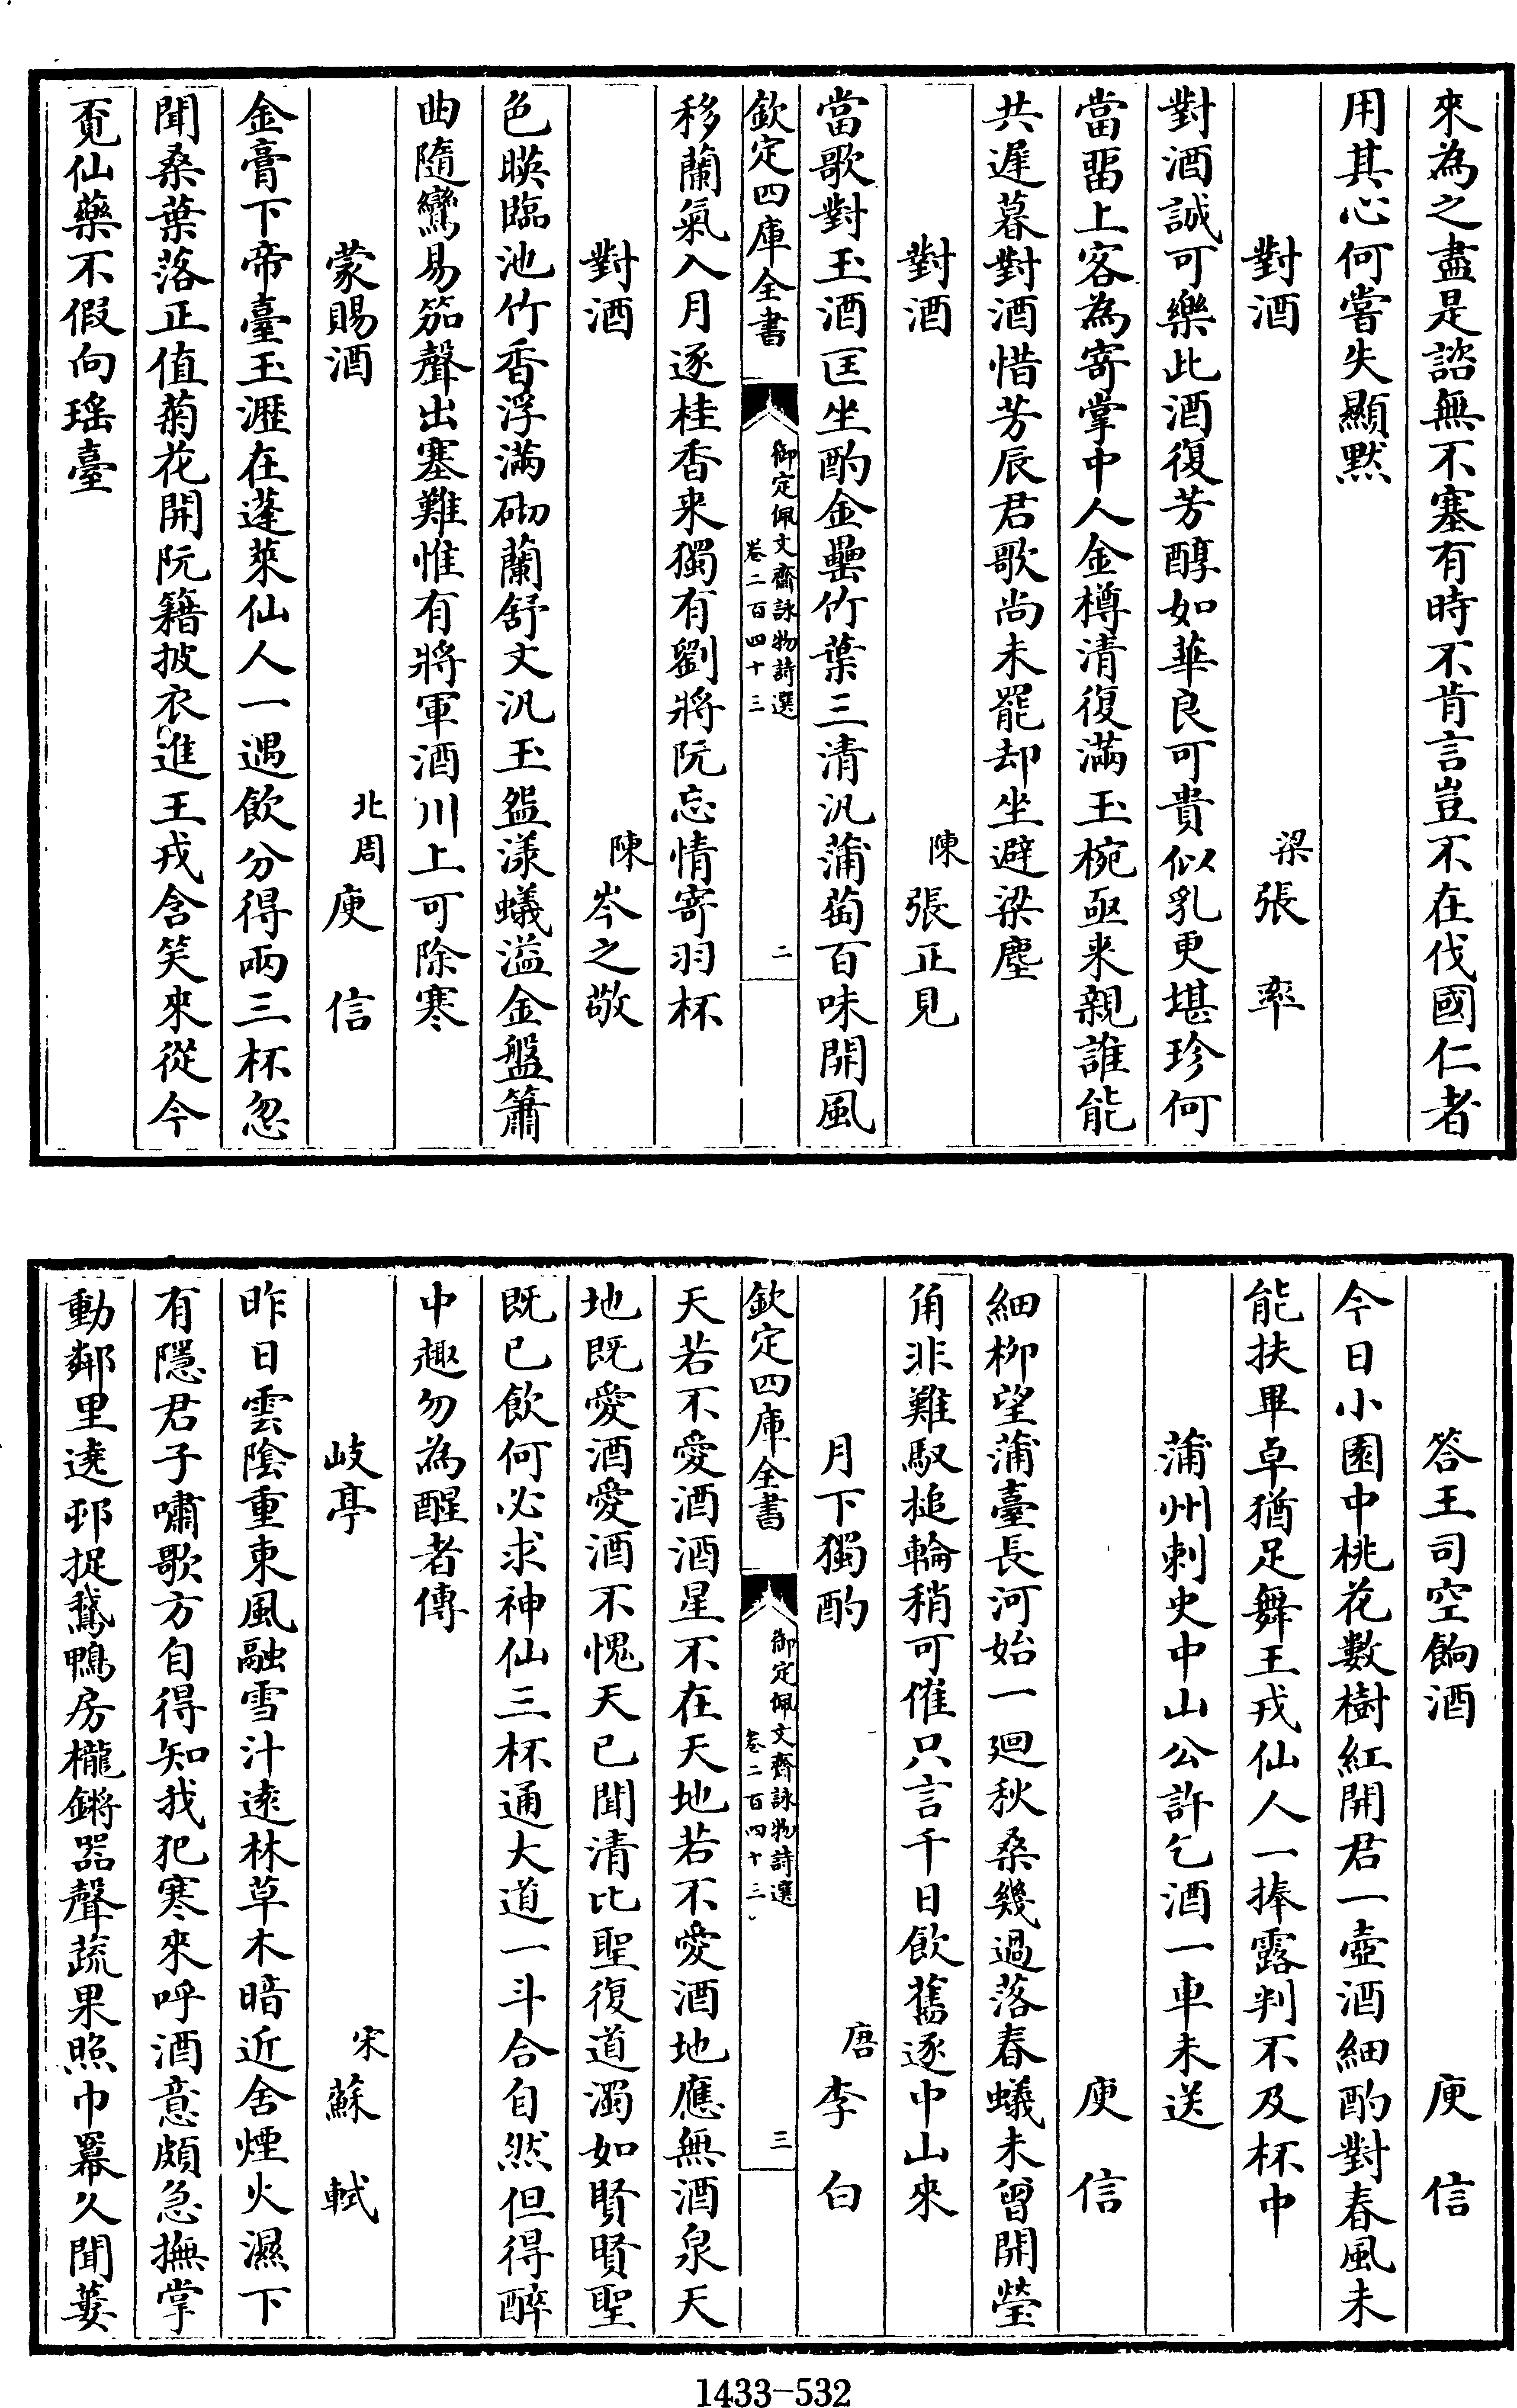 來為之盡是諮無不塞有時不肯言豈不在伐國仁者
用其心何嘗失顯黙
對酒
梁張率
對酒誠可樂此酒復芳醇如華良可貴似乳更堪珍何
當留上客為寄掌中人金樽清復滿玉椀亟来親誰能
共遲暮對酒惜芳辰君歌尚未罷却坐避梁塵
對酒
陳張正見
當歌對玉酒匡坐酌金罍竹葉三清汎蒲萄百味開風
欽定四庫全書
御定佩文齋詠物詩選
卷二百四十三
二
移蘭氣入月逐桂香来獨有劉將阮忘情寄羽杯
對酒
陳岑之敬
色暎臨池竹香浮滿砌蘭舒文汎玉盌漾蟻溢金盤簫
曲隨鸞易笳聲出塞難惟有將軍酒川上可除寒
蒙賜酒
北周庾信
金膏下帝臺玉瀝在蓬萊仙人一遇飲分得兩三杯忽
聞桑葉落正值菊花開阮籍披衣進王戎含笑來從今
覔仙藥不假向瑶臺
答王司空餉酒
庾信
今日小園中桃花數樹紅開君一壺酒細酌對春風未
能扶畢卓猶足舞王戎仙人一捧露判不及杯中
蒲州刺史中山公許乞酒一車未送
庾信
細柳望蒲臺長河始一廻秋桑幾過落春蟻未曾開瑩
角非難馭搥輪稍可催只言千日飲舊逐中山來
月下獨酌
唐李白
欽定四庫全書
御定佩文齋詠物詩選
卷二百四十三
三
天若不愛酒酒星不在天地若不愛酒地應無酒泉天
地既愛酒愛酒不愧天已聞清比聖復道濁如賢賢聖
既已飲何必求神仙三杯通大道一斗合自然但得醉
中趣勿為醒者傳
岐亭
宋蘇軾
昨日雲陰重東風融雪汁逺林草木暗近舍煙火濕下
有隱君子嘯歌方自得知我犯寒來呼酒意頗急撫掌
動鄰里遶邨捉鵞鴨房櫳鏘器聲蔬果照巾羃久聞蔞
1433-532